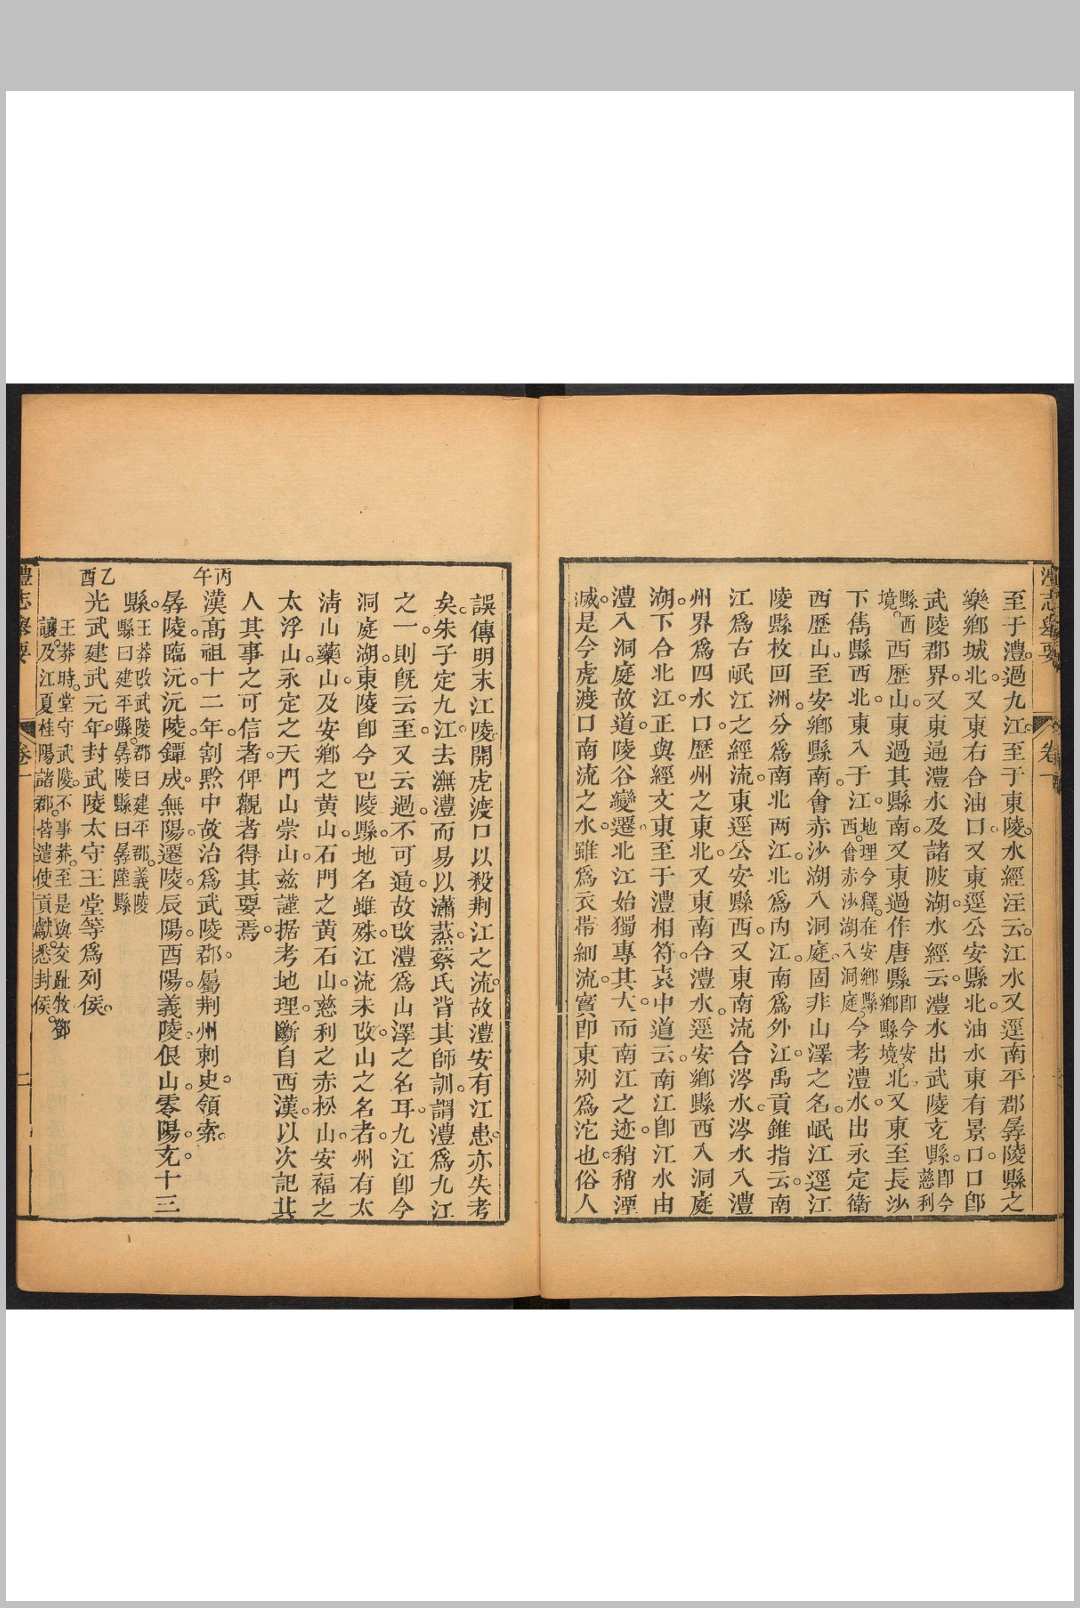 澧志舉要
卷一
至于澧。過九江。至于東陵。水經注云。江水又逕南平郡孱陵縣之
樂鄉城北。又東右合油口。又東逕公安縣北。油水東有景口。口卽
武陵郡界。又東通澧水及諸陂湖。水經云。澧水出武陵充縣。卽今
慈利
縣西
境。西歷山。東過其縣南。又東過作唐縣卽今安
鄉縣境。北。又東至長沙
下雋縣西北。東入于江。地理今釋。在安鄉縣
西。會赤沙湖入洞庭。今考澧水。出永定衛
西歷山。至安鄉縣南。會赤沙湖入洞庭。固非山澤之名。岷江逕江
陵縣枚回洲。分爲南北兩江。北爲內江。南爲外江。禹貢錐指云。南
江爲古岷江之經流。東逕公安縣西。又東南流合涔水。涔水入澧
州界爲四水口。歷州之東北。又東南合澧水。逕安鄉縣西。入洞庭
湖。下合北江。正與經文東至于澧相符。袁中道云。南江卽江水由
澧入洞庭故道。陵谷變遷。北江始獨專其大。而南江之迹。稍稍湮
滅。是今虎渡口南流之水。雖爲衣帶細流。實卽東别爲沱也。俗人
誤傳明末江陵開虎渡口以殺荆江之流。故澧安有江患。亦失考
矣。朱子定九江。去潕澧而易以瀟蒸。蔡氏背其師訓。謂澧爲九江
之一。則旣云至。又云過。不可通。故改澧爲山澤之名耳。九江卽今
洞庭湖。東陵卽今巴陵縣。地名雖殊。江流未改。山之名者。州有太
淸山藥山。及安鄉之黃山。石門之黃石山。慈利之赤松山。安福之
太浮山。永定之天門山崇山。茲謹据考地理。斷自西漢。以次記其
人其事之可信者。俾觀者得其要焉。
丙
午
漢高祖十二年。割黔中故治爲武陵郡。屬荆州刺史。領索。
孱陵。臨沅。沅陵。鐔成。無陽。遷陵。辰陽。酉陽。義陵。佷山。零陽。充十三
縣。王莽改武陵郡曰建平郡。義陵
縣曰建平縣。孱陵縣曰孱陸縣
乙
酉
光武建武元年。封武陵太守王堂等爲列侯。
王莽時。堂守武陵。不事莽。至是與交趾牧鄧
讓。及江夏桂陽諸郡。皆遣使貢獻。悉封侯。
澧志舉要
卷一
二